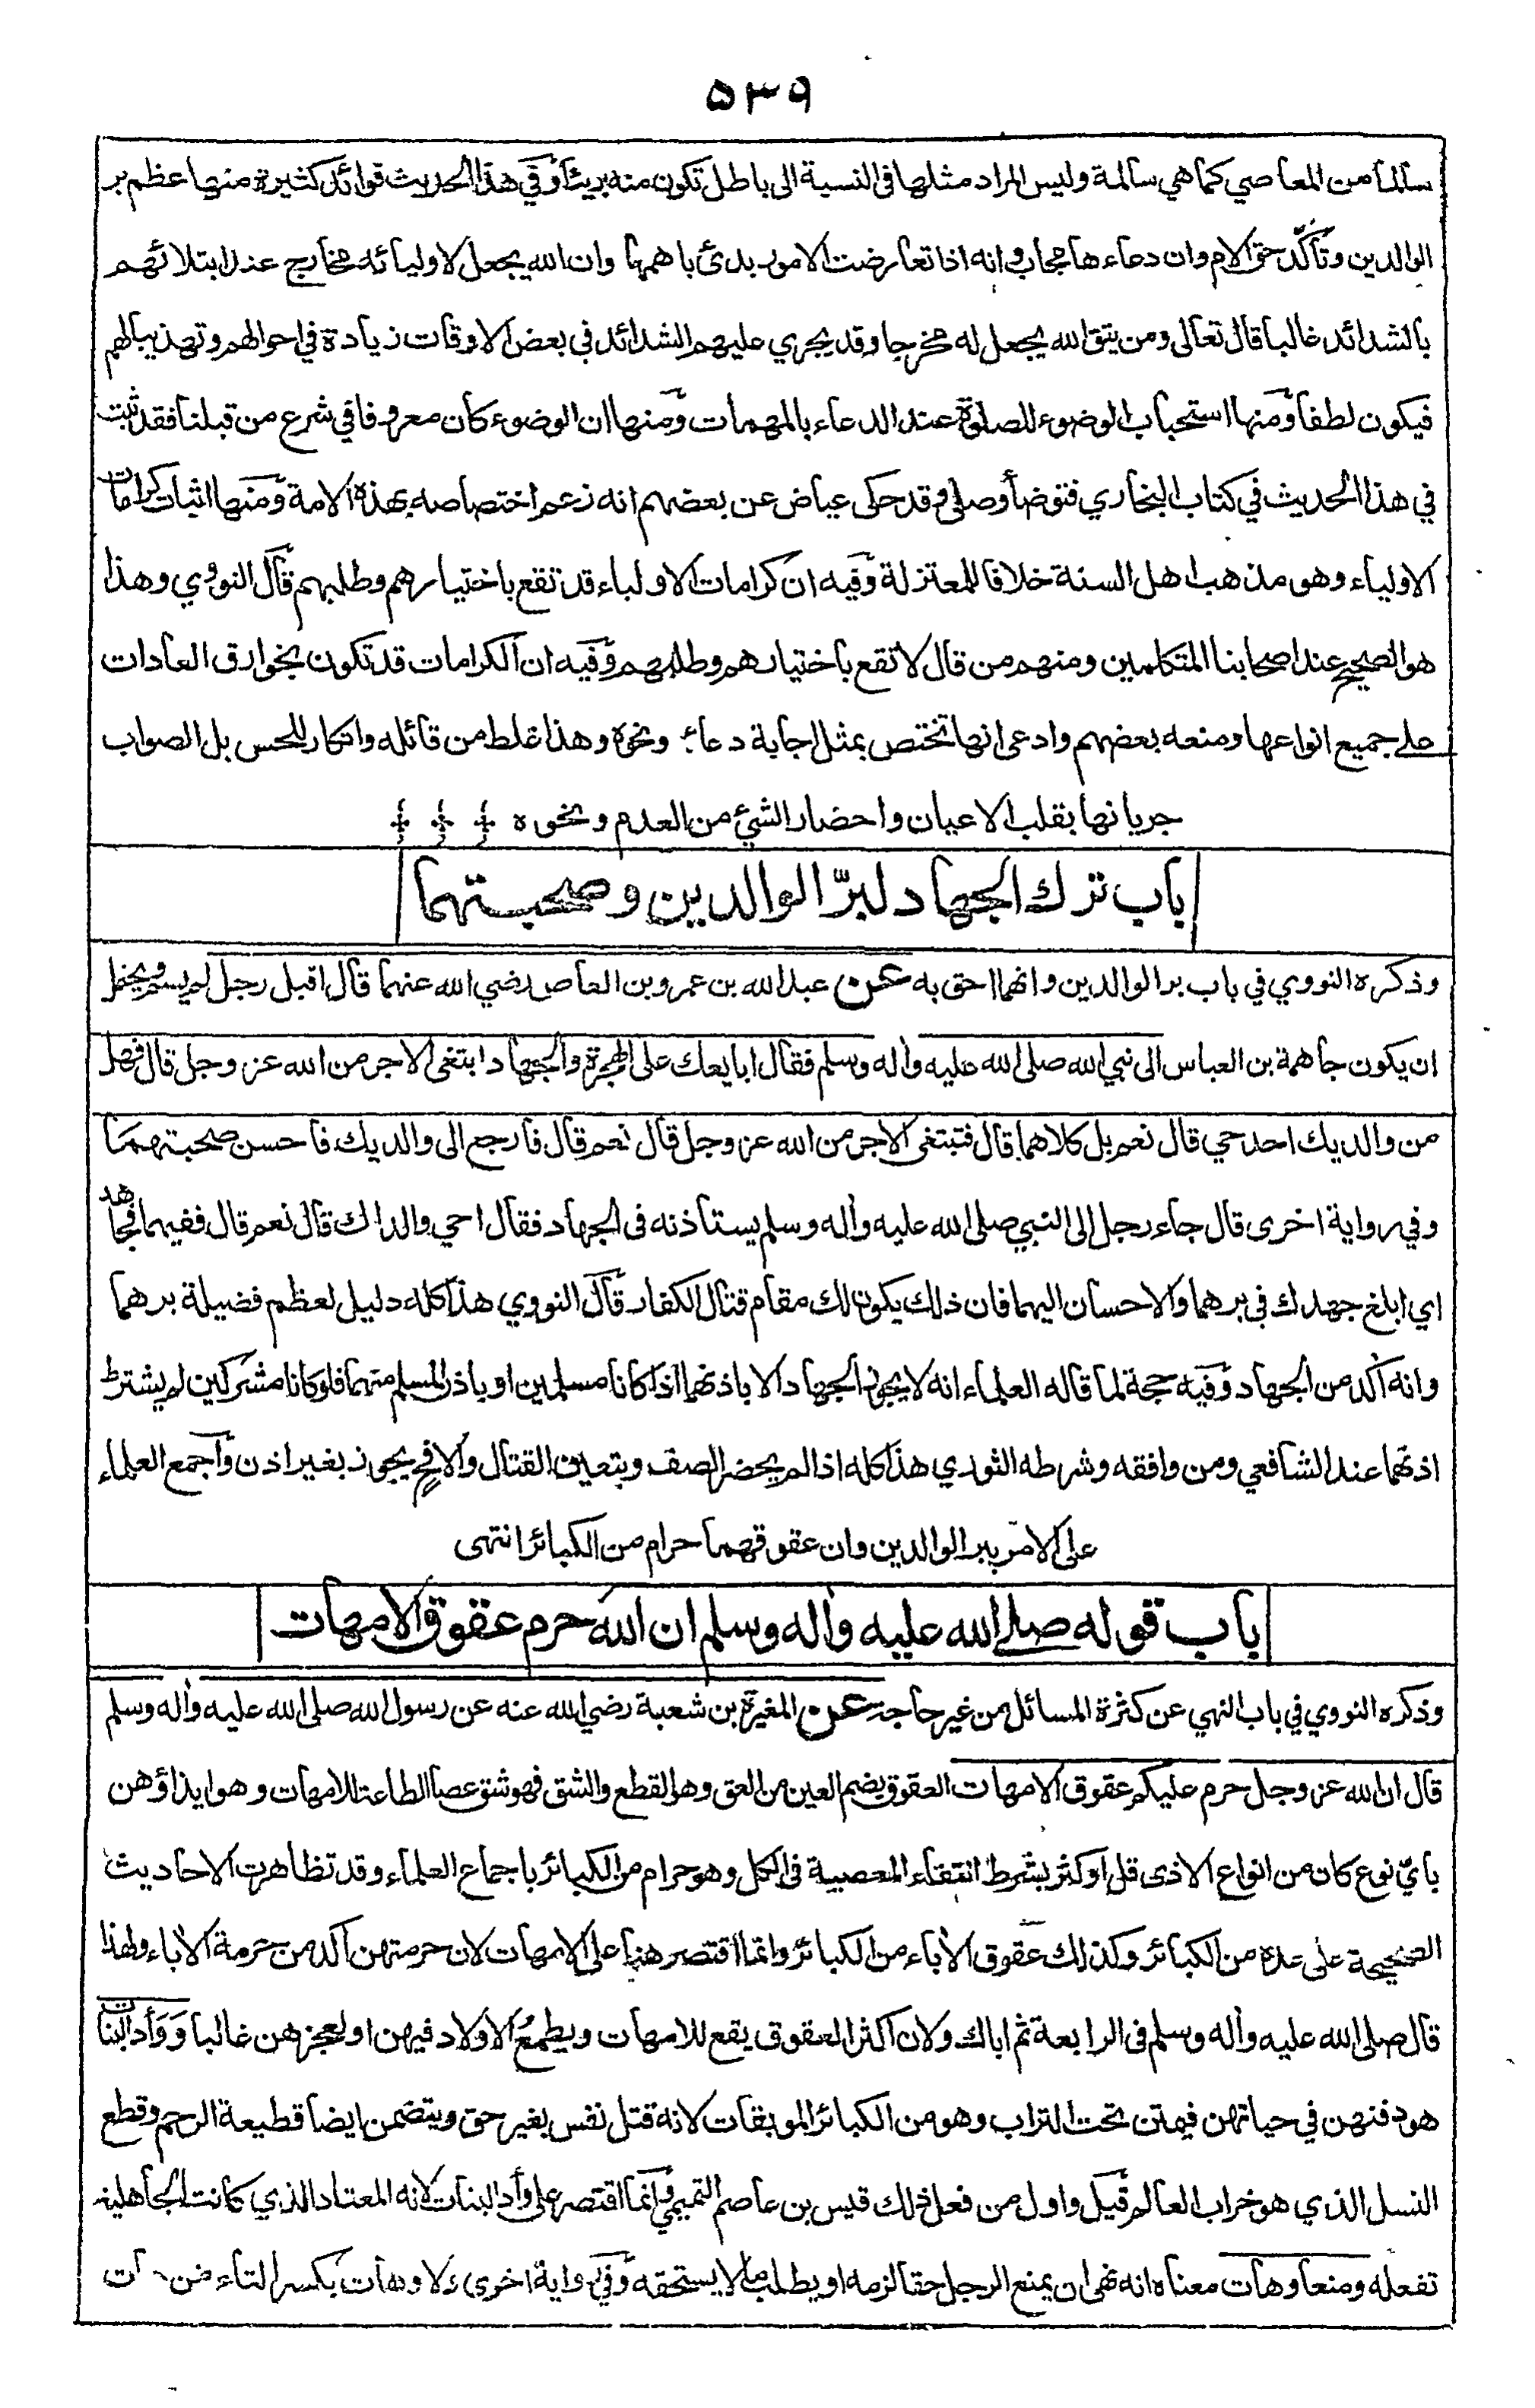 ۵۳۹
سالما من المعاصي كما هي سالمة وليس المراد مثلها في النسبة الى باطل تكون منه بريئا وفي هذا الحديث فوائد كثيرة منها عظم بر
الوالدين وتأكد حق الام وان دعاءها مجاب وانه اذا تعارضت الامور بدئ باهمها وان الله يجعل لاوليائه مخارج عند ابتلائهم
بالشدائد غالبا قال تعالى ومن يتق الله يجعل له مخرجا وقد يجري عليهم الشدائد في بعض الاوقات زيادة في احوالهم وتهذيبا لهم
فيكون لطفا ومنها استحباب الوضوء للصلوة عند الدعاء بالمهمات ومنها ان الوضوء كان معروفا في شرع من قبلنا فقد ثبت
في هذا الحديث في كتاب البخاري فتوضأ وصلى وقد حكى عياض عن بعضهم انه زعم اختصاصه بهذه الامة ومنها اثبات كرامات
الاولياء وهو مذهب اهل السنة خلافا للمعتزلة وفيه ان كرامات الاولياء قد تقع باختيارهم وطلبهم قال النووي وهذا
هو الصحيح عند اصحابنا المتكلمين ومنهم من قال لا تقع باختيارهم وطلبهم وفيه ان الكرامات قد تكون بخوارق العادات
على جميع انواعها ومنعه بعضهم وادعى انها تختص بمثل اجابة دعاء ونحوه وهذا غلط من قائله وانكار للحس بل الصواب
جريانها بقلب الاعيان واحضار الشيء من العدم ونحوه
باب ترك الجهاد لبرّ الوالدين وصحبتهما
وذكره النووي في باب بر الوالدين وانهما احق به عن عبد الله بن عمرو بن العاص رضي الله عنهما قال اقبل رجل لم يسم ويحتمل
ان يكون جاهمة بن العباس الى نبي الله صلى الله عليه واله وسلم فقال ابايعك على الهجرة والجهاد ابتغي الاجر من الله عز وجل قال فهل
من والديك احد حي قال نعم بل كلاهما قال فتبتغي الاجر من الله عز وجل قال نعم قال فارجع الى والديك فاحسن صحبتهما
وفي رواية اخرى قال جاء رجل الى النبي صلى الله عليه واله وسلم يستاذنه في الجهاد فقال احي والداك قال نعم قال ففيهما فجاهد
اي ابلغ جهدك في برهما والاحسان اليهما فان ذلك يكون لك مقام قتال الكفار قال النووي هذا كله دليل لعظم فضيلة برهما
وانه اكد من الجهاد وفيه حجة لما قاله العلماء انه لا يجوز الجهاد الا باذنهما اذا كانا مسلمين او باذن المسلم منهما فلو كانا مشركين لم يشترط
اذنهما عند الشافعي ومن وافقه وشرطه الثوري هذا كله اذا لم يحضر الصف ويتعين القتال والا فح يجوز بغير اذن واجمع العلماء
على الامر ببر الوالدين وان عقوقهما حرام من الكبائر انتهى
باب قوله صلى الله عليه واله وسلم ان الله حرم عقوق الامهات
وذكره النووي في باب النهي عن كثرة المسائل من غير حاجة عن المغيرة بن شعبة رضي الله عنه عن رسول الله صلى الله عليه واله وسلم
قال ان الله عز وجل حرم عليكم عقوق الامهات العقوق بضم العين من العق وهو القطع والشق فهو شق عصا الطاعة للامهات وهو ايذاؤهن
باي نوع كان من انواع الاذى قل او كثر بشرط انتفاء المعصية في الكل وهو حرام من الكبائر باجماع العلماء وقد تظاهرت الاحاديث
الصحيحة على عده من الكبائر وكذلك عقوق الاباء من الكبائر وانما اقتصر هنا على الامهات لان حرمتهن آكد من حرمة الاباء ولهذا
قال صلى الله عليه واله وسلم في الرابعة ثم اباك ولان اكثر العقوق يقع للامهات ويطمع الاولاد فيهن او لعجزهن غالبا ووأد البنات
هو دفنهن في حياتهن فيمتن تحت التراب وهو من الكبائر الموبقات لانه قتل نفس بغير حق ويتضمن ايضا قطيعة الرحم وقطع
النسل الذي هو خراب العالم قيل واول من فعل ذلك قيس بن عاصم التميمي وانما اقتصر على وأد البنات لانه المعتاد الذي كانت الجاهلية
تفعله ومنعا وهات معناه انه نهى ان يمنع الرجل حقا لزمه او يطلب ما لا يستحقه وفي رواية اخرى ولا وهات بكسر التاء من